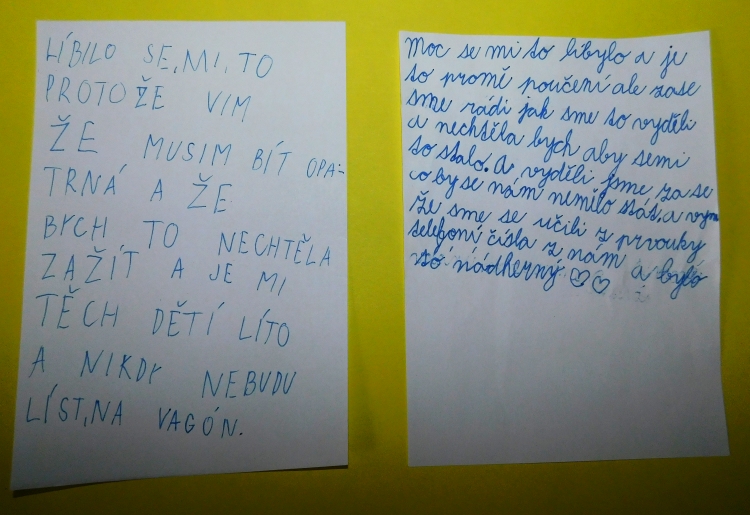 LÍBILO SE, MI, TO
PROTOŽE VIM
ŽE MUSIM BÍT OPA-
TRNÁ A ŽE
BYCH TO NECHTĚLA
ZAŽÍT A JE MI
TĚCH DĚTÍ LÍTO
A NIKDY NEBUDU
LÍST, NA VAGÓN.
Moc se mi to líbylo a je
to promě poučení ale zase
sme radi jak sme to vyděli
a nechtěla bych aby semi
to stalo. A vyděli jsme zase
co by se nám nemělo stát. a vym
že sme se učili z prvouky
telefoní čísla z nám a bylo
to nádherný ♡♡